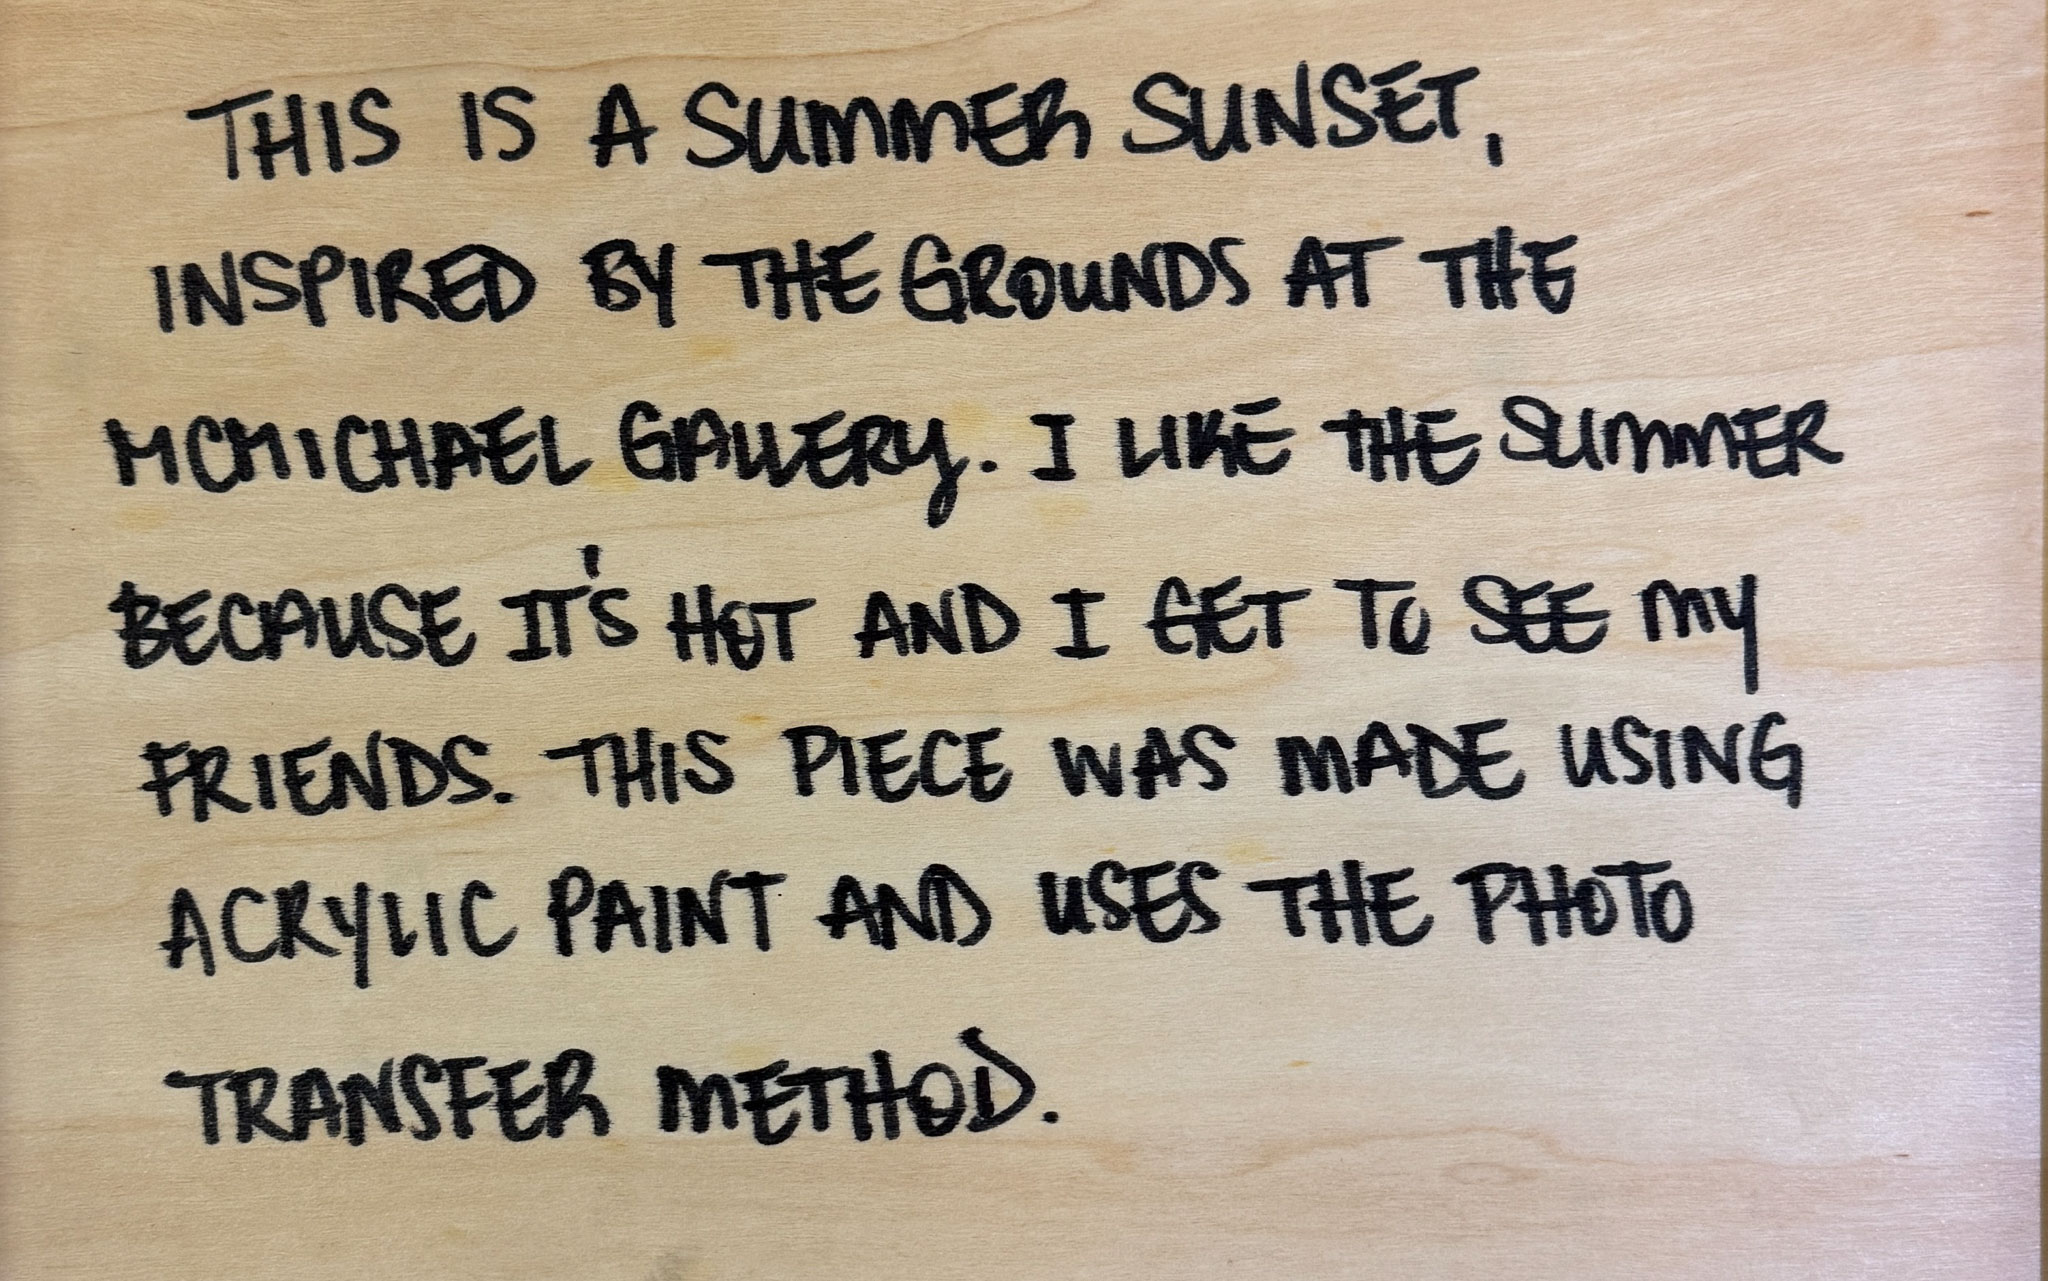 THIS IS A SUMMER SUNSET,
INSPIRED BY THE GROUNDS AT THE
MCMICHAEL GALLERY. I LIKE THE SUMMER
BECAUSE IT'S HOT AND I GET TO SEE MY
FRIENDS. THIS PIECE WAS MADE USING
ACRYLIC PAINT AND USES THE PHOTO
TRANSFER METHOD.